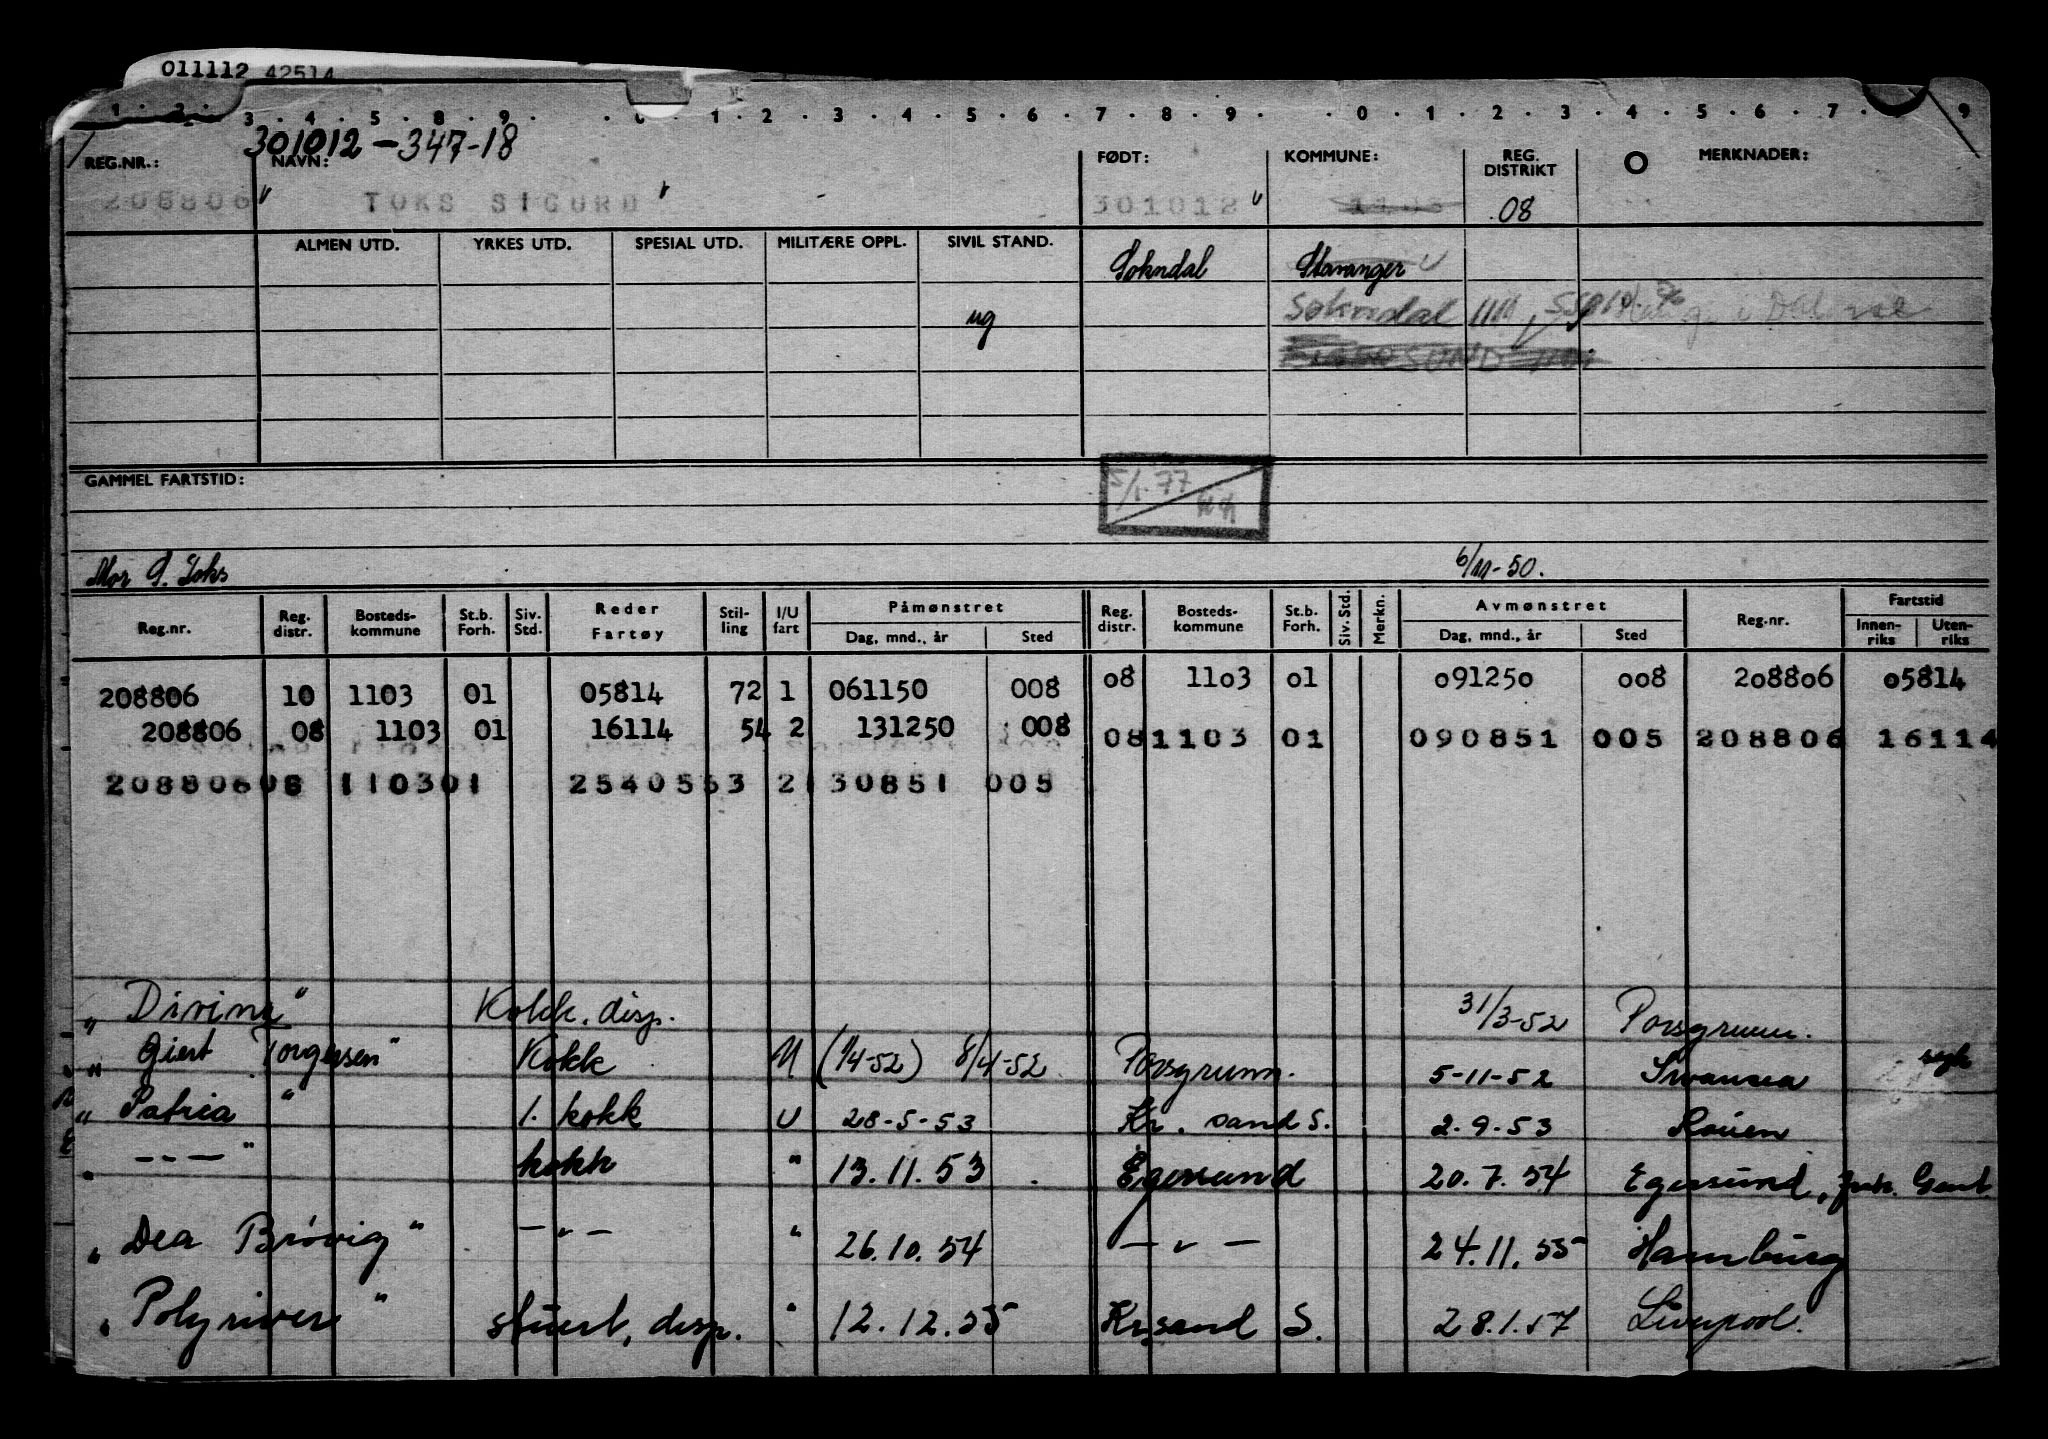 011112 42514
1 · 2 · 3 · 4 · 5 · 8 · 9 · 0 · 1 · 2 · 3 · 4 · 5 · 6 · 7 · 8 · 9 · 0 · 1 · 2 · 3 · 4 · 5 · 6 · 7 · 9
301012-347-18
REG.NR.: NAVN: FØDT: KOMMUNE: REG. DISTRIKT MERKNADER:
208806 TOKS SIGURD 301012 1103 08
ALMEN UTD. YRKES UTD. SPESIAL UTD. MILITÆRE OPPL. SIVIL STAND. Sokndal Stavanger
ug Sokndal 1111
GAMMEL FARTSTID: 5/1-77
Mor S. Toks 6/11-50.
Reg.nr. Reg. distr. Bosteds-kommune St.b. Forh. Siv. Std. Reder Fartøy Stil-ling I/U fart Påmønstret Dag, mnd., år Sted Reg. distr. Bosteds-kommune St.b. Forh. Siv. Std. Merkn. Avmønstret Dag, mnd., år Sted Reg.nr. Fartstid Innen-riks Uten-riks
208806 10 1103 01 05814 72 1 061150 008 08 1103 01 091250 008 208806 05814
208806 08 1103 01 16114 54 2 131250 008 08 1103 01 090851 005 208806 16114
208806 08 1103 01 25405 53 2 130851 005
" Divina" Kokk, disp. 31/3-52 Porsgrunn.
" Giert Torgersen" Kokk U (1/4-52) 8/4-52 Porsgrunn. 5-11-52 Swansea
" Patria " 1. kokk U 28-5-53 Kr. sand S. 2-9-53 Rouen
" -"- " kokk " 13.11.53 Egersund 20.7.54 Egersund,
" Dea Brøvig" -"- " 26.10.54 -"- 24.11.55 Hamburg
" Polyriver " stuert, disp. " 12.12.55 Kr.sand S. 28.1.57 Liverpool.